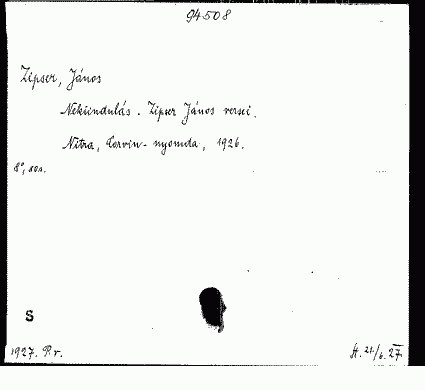 94508
Zipser, János
Nekiindulás. Zipser János versei.
Nitra, Corvin-nyomda, 1926.
8°, 80 s.
S
1927. P. r.
27.